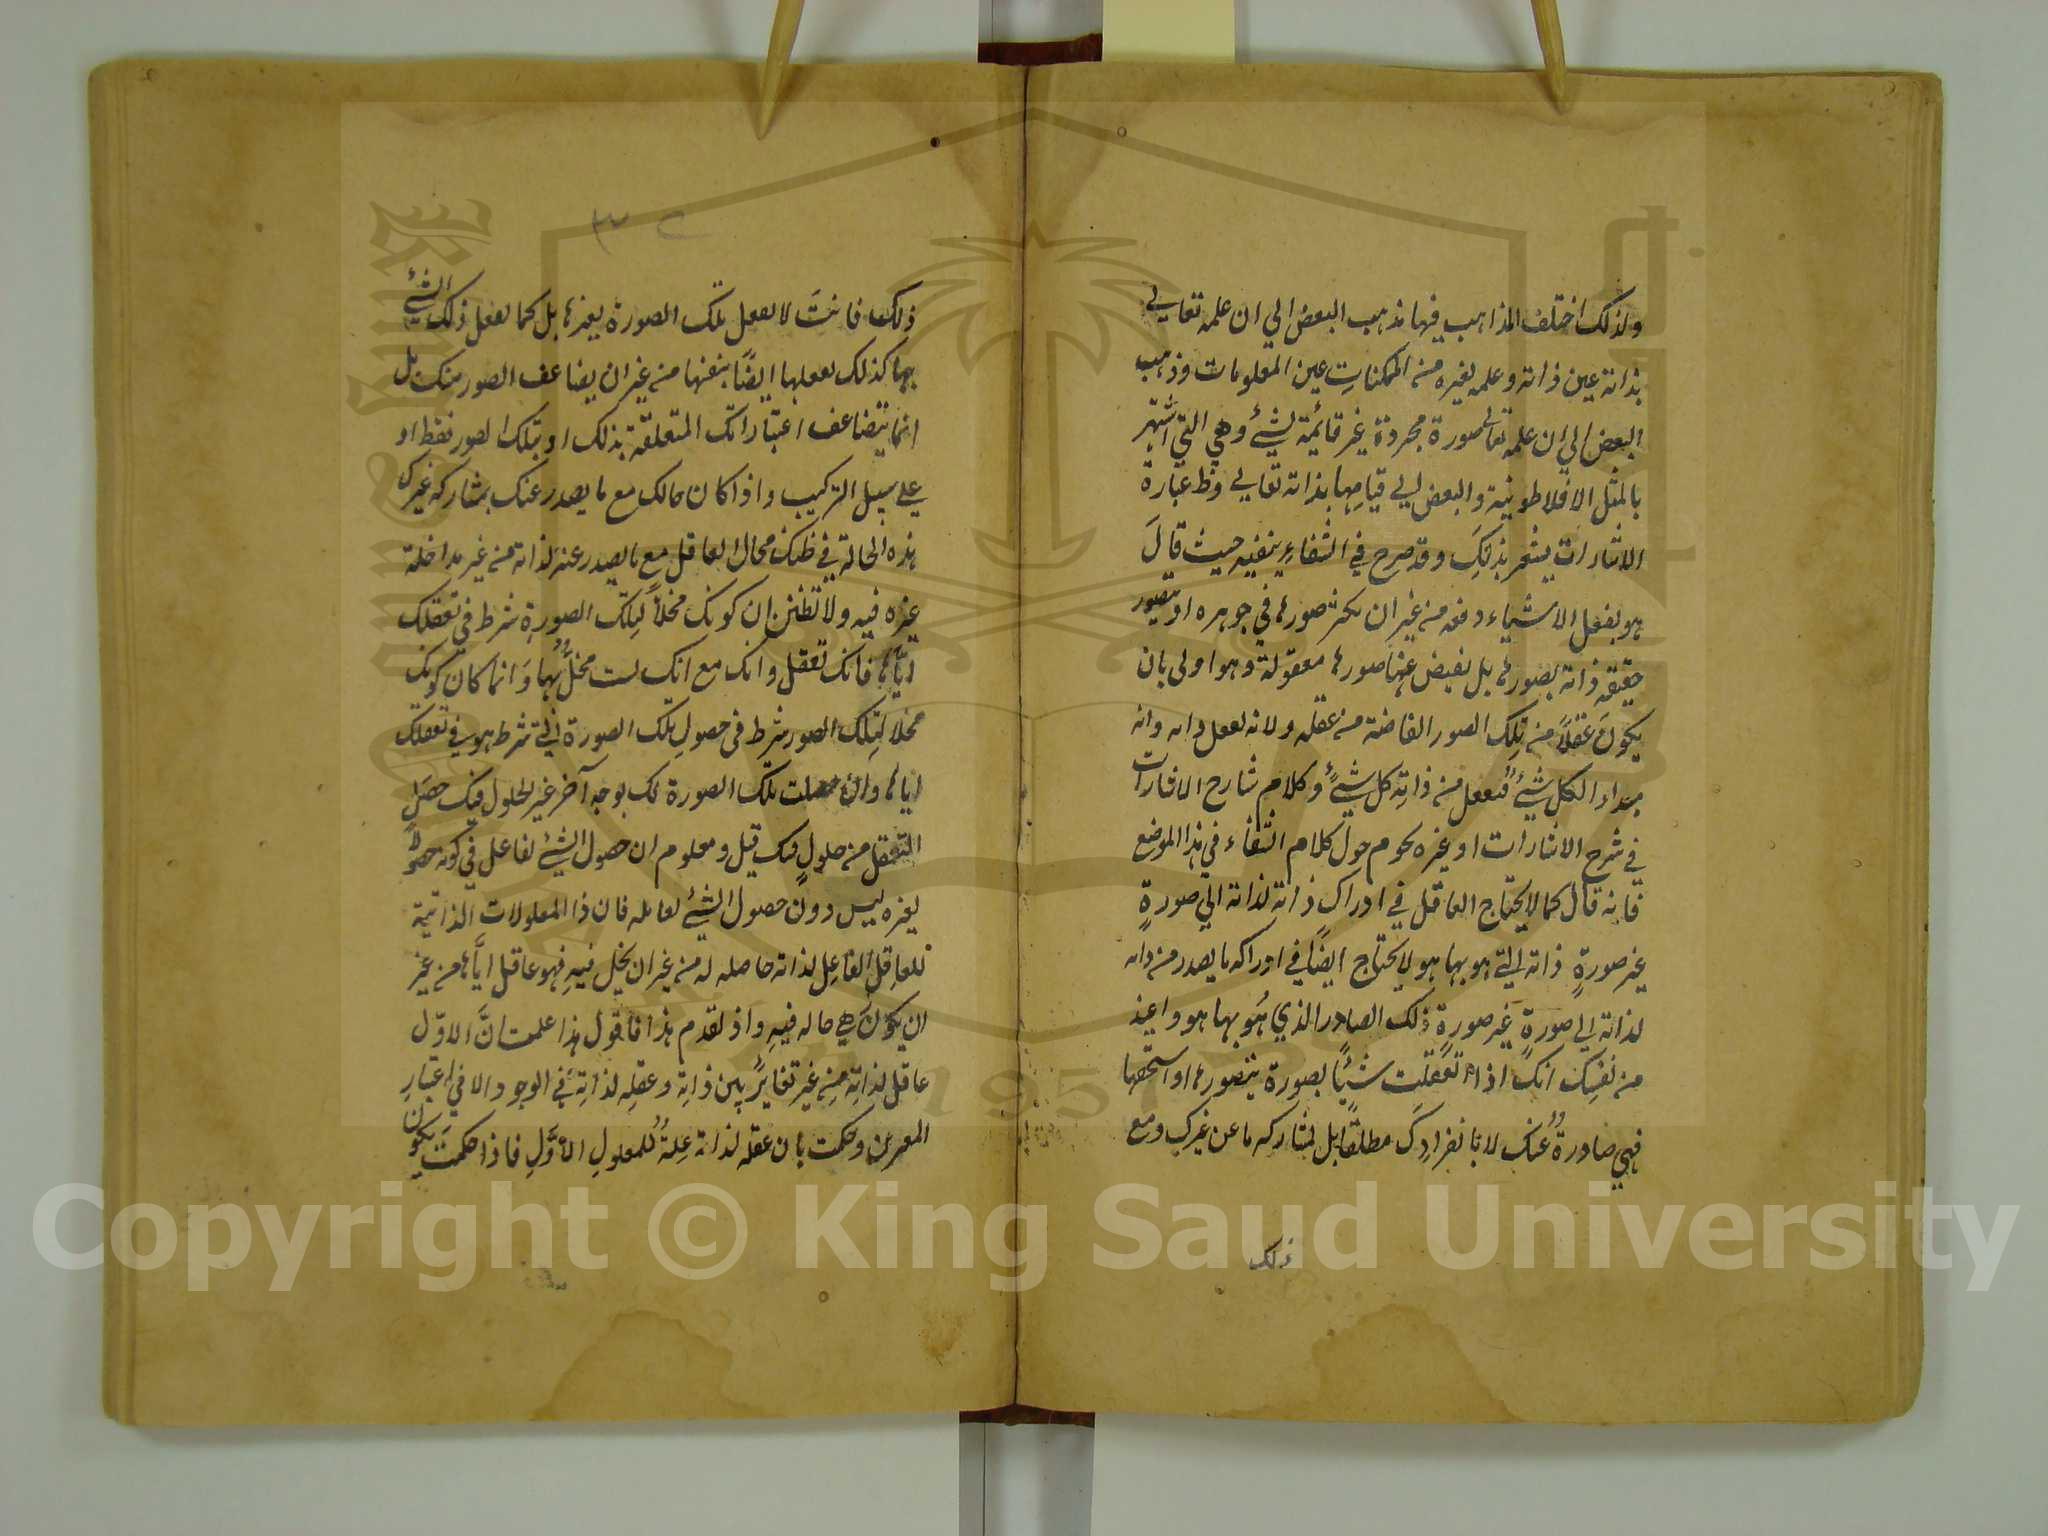 ولذلك اختلف المذاهب فيها فذهب البعض الي ان علمه تعالي
بذاته عين ذاته وعلمه بغيره من الممكنات عين المعلومات وذهب
البعض الي ان علمه تعالي صورة مجردة غير قائمة لشئ وهي التي اشتهر
بالمثل الافلاطونية والبعض الي قيامها بذاته تعالي وظ عبارة
الاشارات يشعر بذلك وقد صرح في الشفاء بنفيه حيث قال
هو يعقل الاشياء دفعه من غير ان يكثر صورها في جوهره او يتصور
حقيقه ذاته بصورها بل يفيض عنها صورها معقولة وهو اولى بان
يكون عقلا من تلك الصور الفاضة من عقله ولانه يعقل ذاته وانه
مبداء الكل شئ فيعقل من ذاته كل شئ وكلام شارح الاشارات
في شرح الاشارات او غيره يحوم حول كلام الشفاء في هذا الموضع
فانه قال كما لا يحتاج العاقل في ادراك ذاته لذاته الي صورة
غير صورة ذاته التي هو بها هو لا يحتاج ايضا في ادراكه ما يصدر من ذاته
لذاته الي صورة غير صورة ذلك الصادر الذي هو بها هو واعتبر
من نفسك انك اذا تعقلت شيئا بصورة تتصورها او استحضرتها
فهي صادرة عنك لا بانفرادك مطلقا بل لمشاركه ما عن غيرك ومع
ذلك
ذلك فانت لا تعقل تلك الصورة بغيرها بل كما تعقل ذلك الشئ
بها كذلك تعقلها ايضا بنفسها من غير ان يضاعف الصور منك بل
انما يتضاعف اعتباراتك المتعلقة بذلك او بتلك الصور فقط او
علي سبيل التركيب واذا كان حالك مع ما يصدر عنك بمشاركه غيرك
هذه الحالة في ظنك محال العاقل مع ما يصدر عنه لذاته من غير مداخلة
غيره فيه ولا تظنن ان كونك محلا لتلك الصورة شرط في تعقلك
اياها فانك تعقل ذاتك مع انك لست محل لها وانما كان كونك
محلا لتلك الصور شرط في حصول تلك الصورة التي شرط هو في تعقلك
اياها وان حصلت تلك الصورة لك بوجه آخر غير الحلول فيك حصل
التعقل من حلول فيك قيل ومعلوم ان حصول الشئ لفاعل في كونه حصولا
لغيره ليس دون حصول الشئ لقابله فان ذا المعلولات الذاتية
للعاقل الفاعل لذاته حاصله له من غير ان يحل فيه فهو عاقل اياها من غير
ان يكون هي حاله فيه واذ تقدم هذا فاقول هذا علمت ان الاول
عاقل لذاته من غير تغاير بين ذاته وعقله لذاته في الوجود الا في اعتبار
المعبرين وحكمت بان عقله لذاته علة للمعلول الاول فاذا حكمت يكون
Copyright © King Saud University